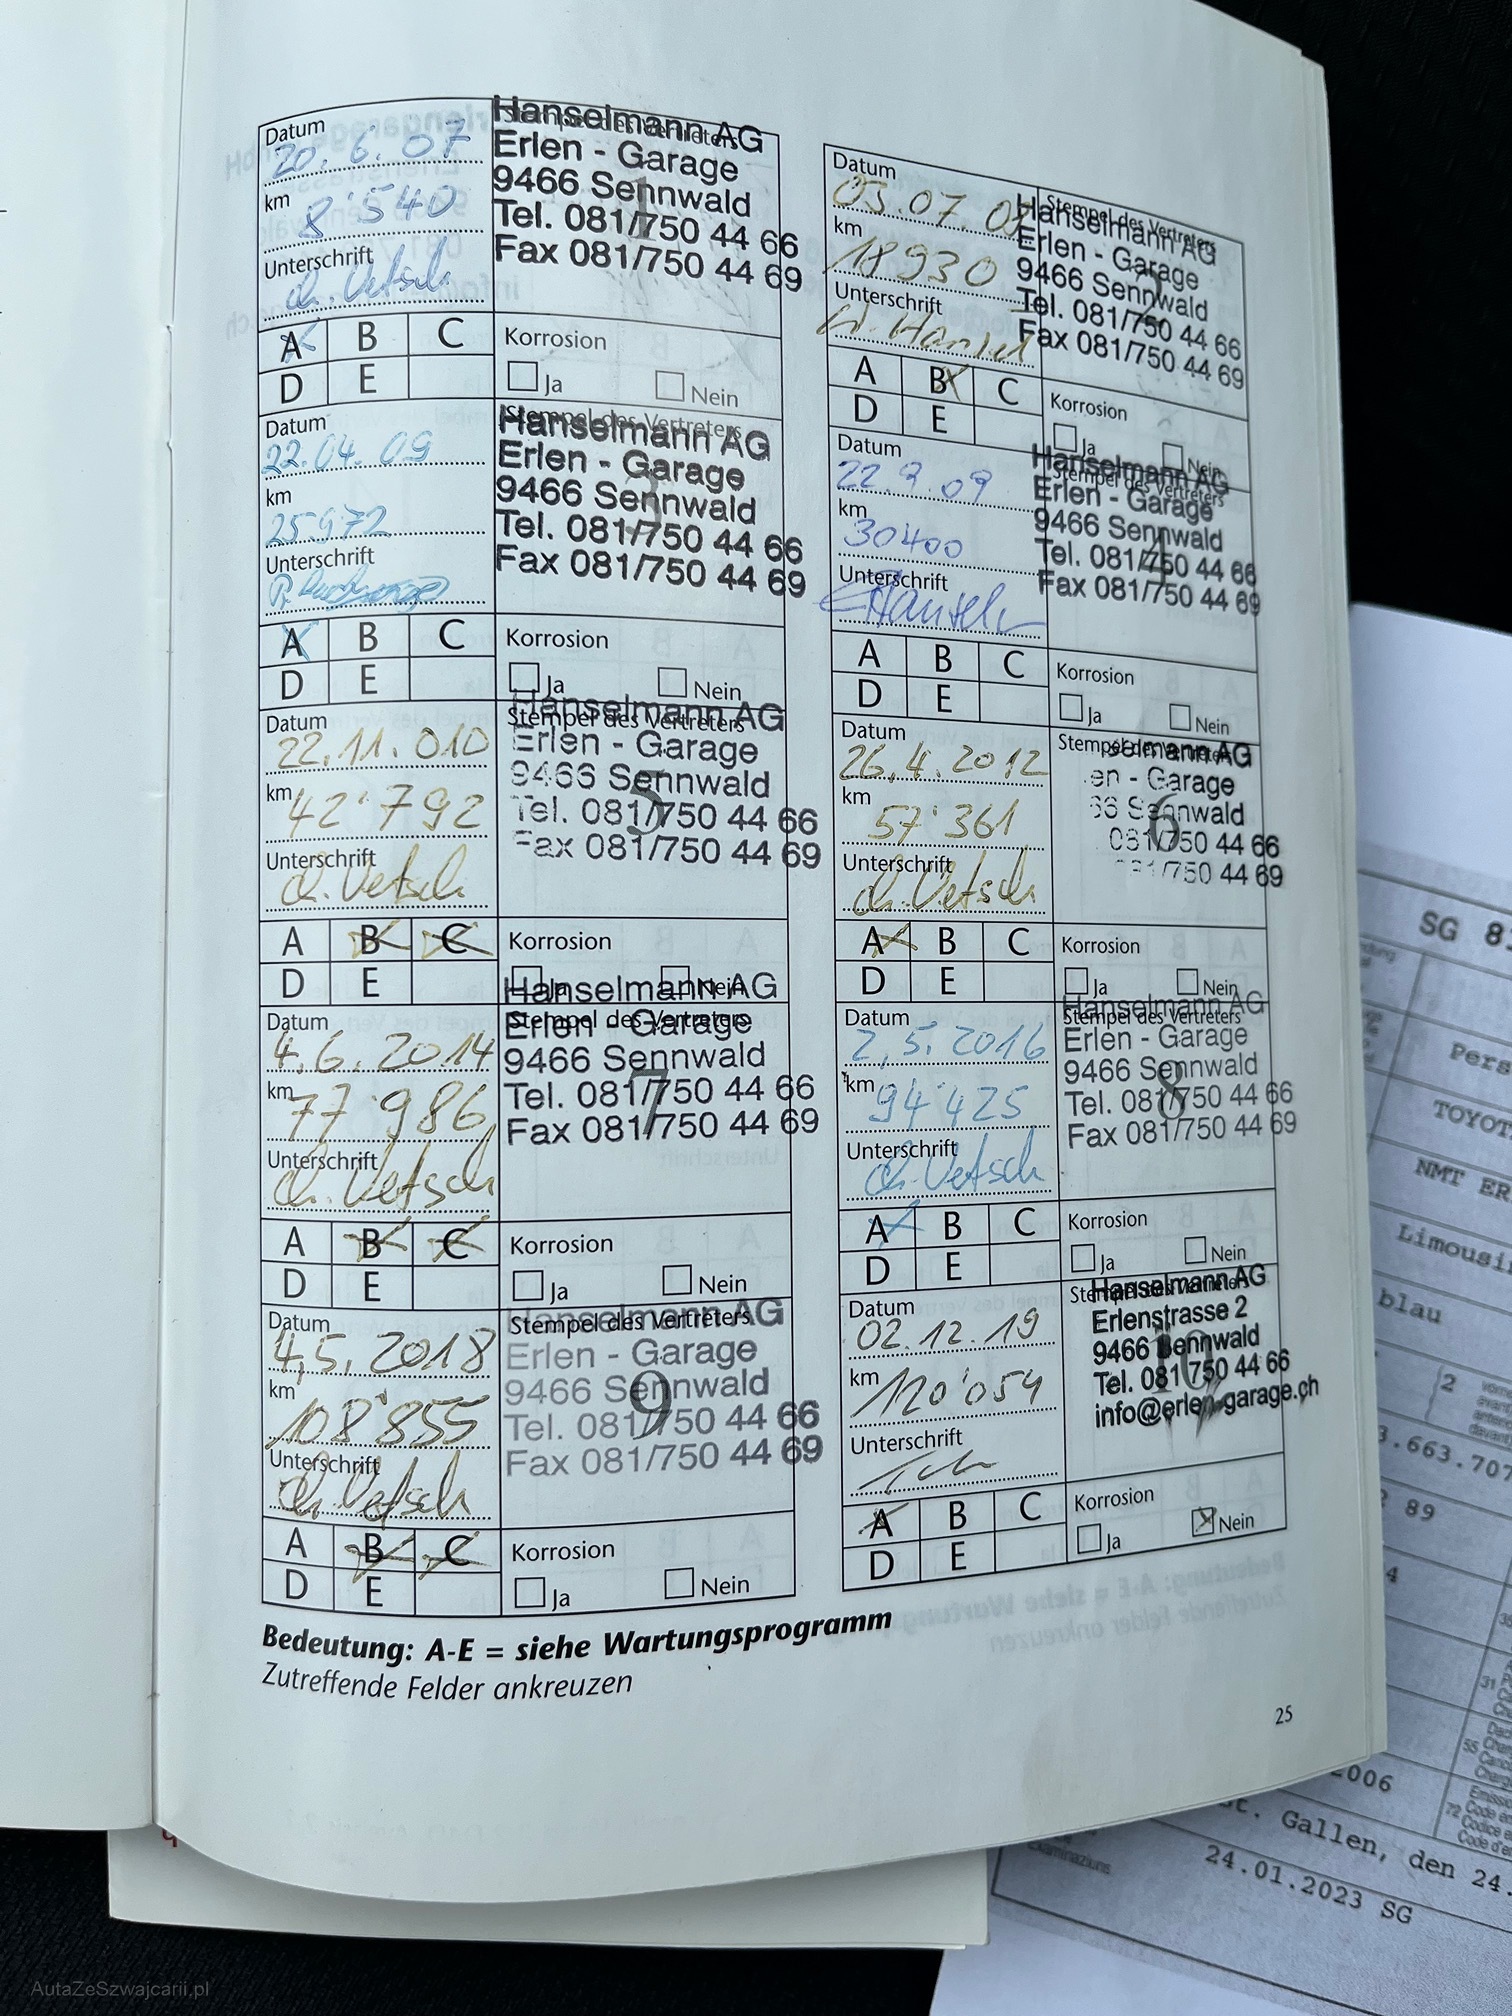 Datum
20.6.07
km
8'540
Unterschrift
ch. Vetsch
Stempel des Vertreters
Hanselmann AG
Erlen - Garage
9466 Sennwald
Tel. 081/750 44 66
Fax 081/750 44 69
1
A B C
D E
Korrosion
Ja Nein
Datum
03.07.08
km
18930
Unterschrift
Stempel des Vertreters
Hanselmann AG
Erlen - Garage
9466 Sennwald
Tel. 081/750 44 66
Fax 081/750 44 69
2
A B C
D E
Korrosion
Ja Nein
Datum
22.04.09
km
25972
Unterschrift
Stempel des Vertreters
Hanselmann AG
Erlen - Garage
9466 Sennwald
Tel. 081/750 44 66
Fax 081/750 44 69
3
A B C
D E
Korrosion
Ja Nein
Datum
22.9.09
km
30400
Unterschrift
Stempel des Vertreters
Hanselmann AG
Erlen - Garage
9466 Sennwald
Tel. 081/750 44 66
Fax 081/750 44 69
4
A B C
D E
Korrosion
Ja Nein
Datum
22.11.010
km
42'792
Unterschrift
ch. Vetsch
Stempel des Vertreters
Hanselmann AG
Erlen - Garage
9466 Sennwald
Tel. 081/750 44 66
Fax 081/750 44 69
5
A B C
D E
Korrosion
Ja Nein
Datum
26.4.2012
km
57'361
Unterschrift
ch. Vetsch
Stempel des Vertreters
selmann AG
en - Garage
66 Sennwald
081/750 44 66
081/750 44 69
6
A B C
D E
Korrosion
Ja Nein
Datum
4.6.2014
km
77'986
Unterschrift
ch. Vetsch
Stempel des Vertreters
Hanselmann AG
Erlen - Garage
9466 Sennwald
Tel. 081/750 44 66
Fax 081/750 44 69
7
A B C
D E
Korrosion
Ja Nein
Datum
2.5.2016
km
94'425
Unterschrift
ch. Vetsch
Stempel des Vertreters
Hanselmann AG
Erlen - Garage
9466 Sennwald
Tel. 081/750 44 66
Fax 081/750 44 69
8
A B C
D E
Korrosion
Ja Nein
Datum
4.5.2018
km
108'855
Unterschrift
ch. Vetsch
Stempel des Vertreters
Hanselmann AG
Erlen - Garage
9466 Sennwald
Tel. 081/750 44 66
Fax 081/750 44 69
9
A B C
D E
Korrosion
Ja Nein
Datum
02.12.19
km
120'054
Unterschrift
Stempel des Vertreters
Hanselmann AG
Erlenstrasse 2
9466 Sennwald
Tel. 081 750 44 66
info@erlen-garage.ch
10
A B C
D E
Korrosion
Ja Nein
Bedeutung: A-E = siehe Wartungsprogramm
Zutreffende Felder ankreuzen
25
SG 8
Pers
TOYOT
NMT ER
Limousi
blau
2
3.663.707
89
4
31
55
2006
72 Code
St. Gallen, den 24.
24.01.2023 SG
AutaZeSzwajcarii.pl